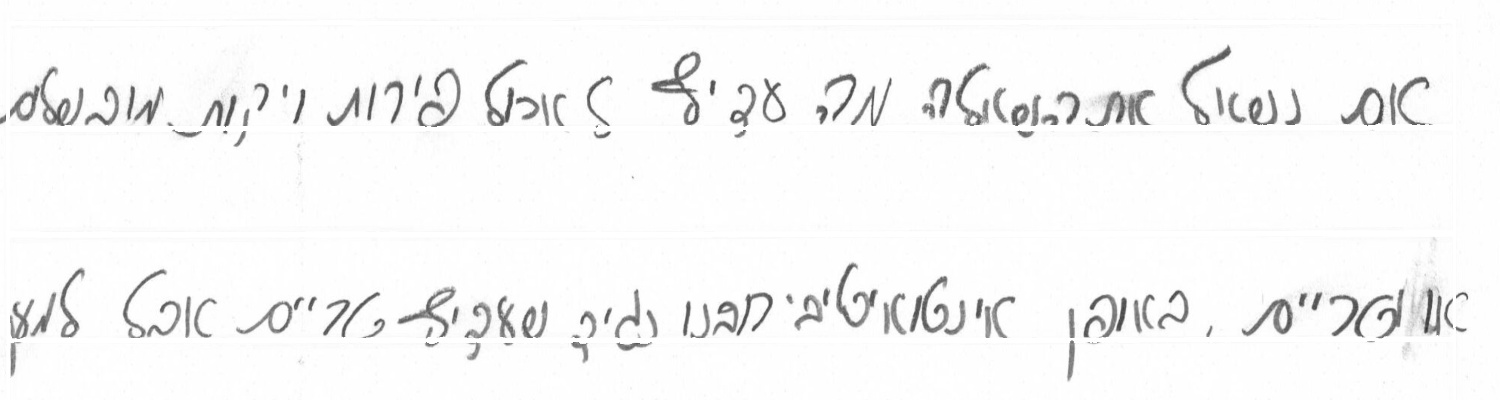 אם נשאל את השאלה מה עדיף לאכול פירות וירקות מבושלים
או טריים, באופן אינטואיטיבי רובנו נגיד שעדיף טריים אבל למען